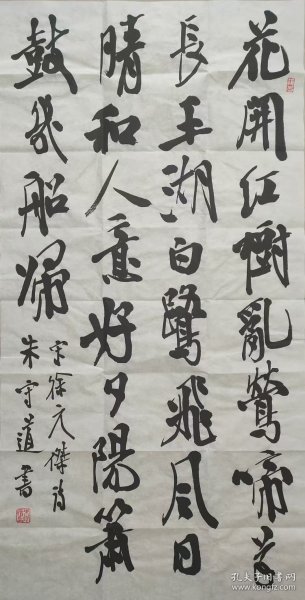 花開紅樹亂鶯啼草
長平湖白鷺飛風日
晴和人意好夕陽簫
鼓幾船歸
宋徐元傑詩
朱守道書
孔夫子旧书网